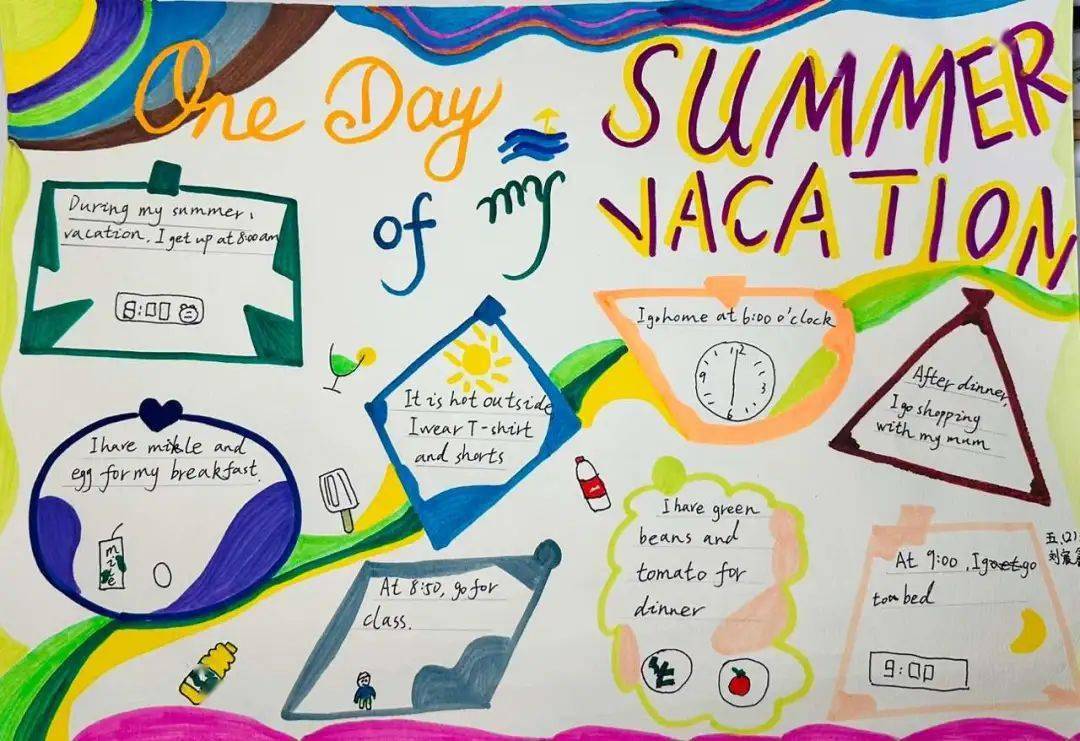 One Day
of my
SUMMER
VACATION
During my summer,
vacation. I get up at 8:00 am
8:00
I have milkle and
egg for my breakfast.
It is hot outside
I wear T-shirt
and shorts
At 8:50, go for
class.
I go home at 6:00 o'clock
12
3
6
9
I have green
beans and
tomato for
dinner
After dinner,
I go shopping
with my mum
At 9:00, I go
to bed
9:00
五(2)